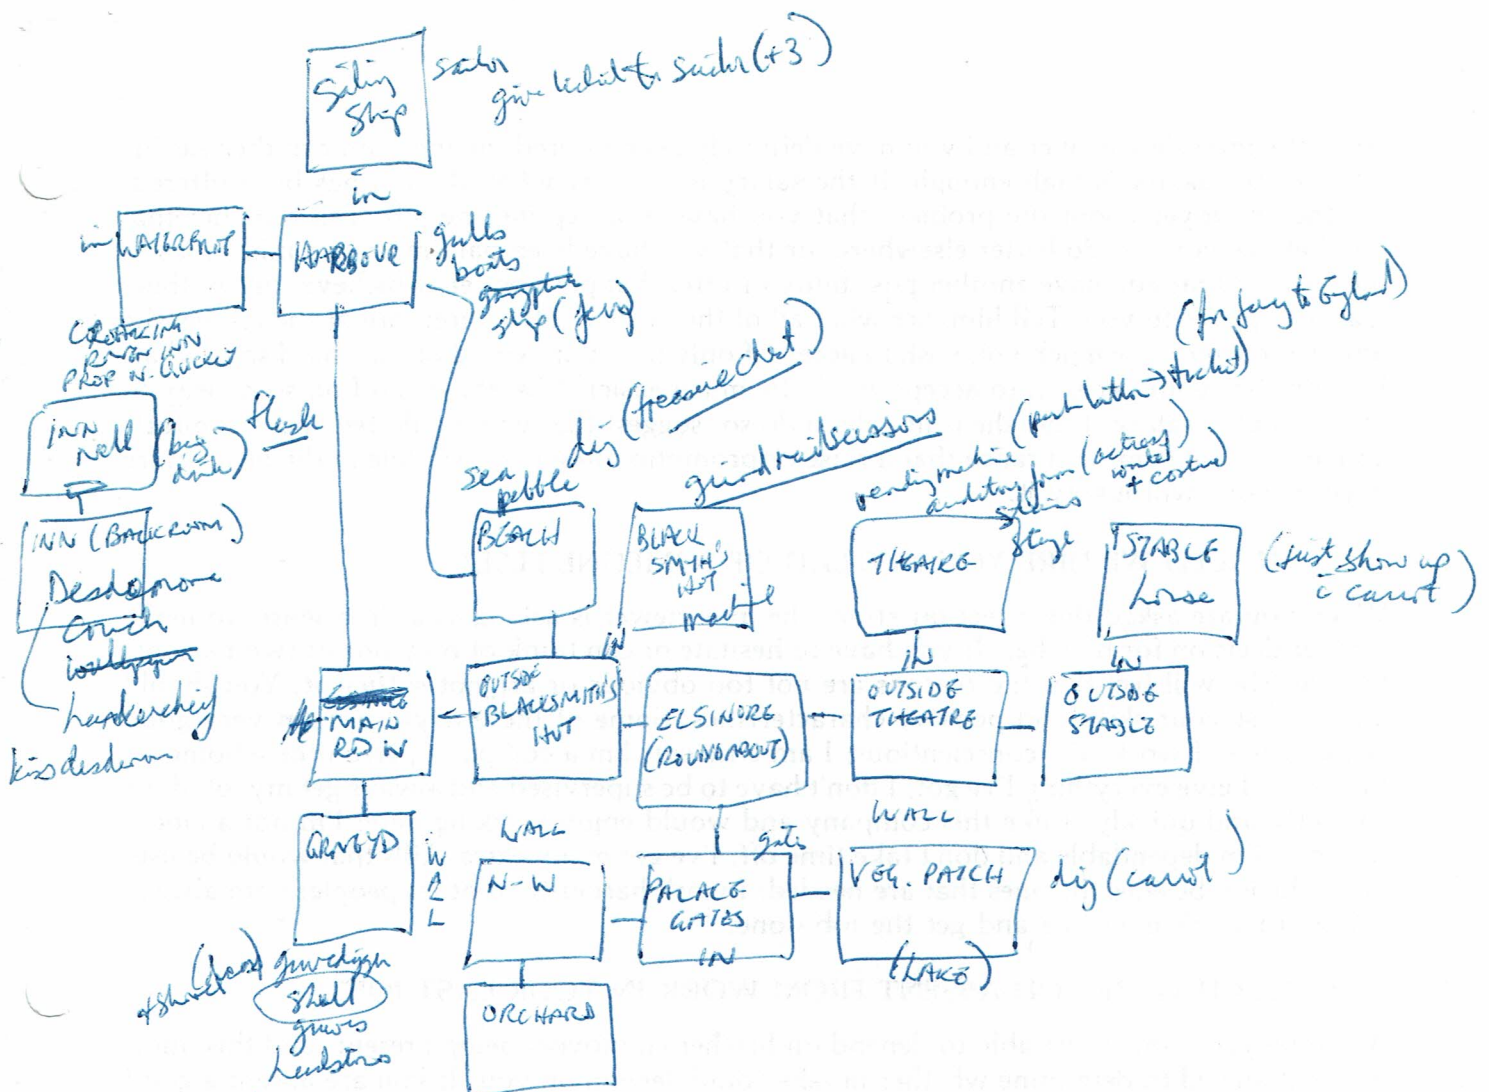 Sailing
Ship
sailor
give ticket to sailor (+3)
in
in WATERFRONT
HARBOUR
gulls
boats
gangplank
ship (ferry)
CROAKING
RAVEN INN
PROP N. QUICKLY
INN
Nell (buy
drink)
flask
INN (BACKROOM)
Desdemona
couch
handkerchief
kiss desdemona
sea
pebble
dig (treasure chest)
BEACH
grind raid scissors
BLACK
SMITH'S
HUT
IN
vending machine (push button → ticket)
(for ferry to England)
audition form (actress
wanted
+ costume)
stage
THEATRE
IN
STABLE
horse
IN
(just show up
c carrot)
MAIN
RD W
OUTSIDE
BLACKSMITH'S
HUT
ELSINORE
(ROUNDABOUT)
OUTSIDE
THEATRE
OUTSIDE
STABLE
GRVEYD
WALL
WALL
N-W
gate
PALACE
GATES
IN
WALL
VEG. PATCH
(LAKE)
dig (carrot)
gravedigger
+ shovel
skull
graves
headstones
ORCHARD